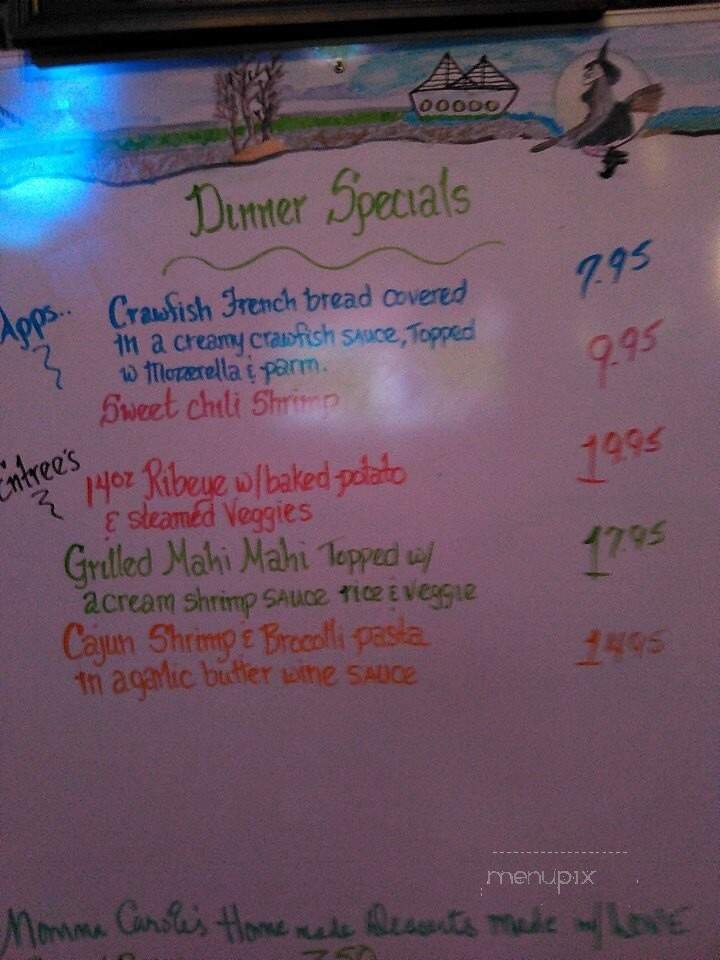 Dinner Specials
Apps..
Crawfish French bread covered 7.95
in a creamy crawfish sauce, Topped
w Mozerella & parm.
Sweet chili Shrimp 9.95
Entree's
14oz Ribeye w/baked potato 19.95
& steamed Veggies
Grilled Mahi Mahi Topped w/ 17.95
a cream shrimp sauce rice & veggie
Cajun Shrimp & Brocolli pasta 14.95
in a garlic butter wine sauce
menupix
Momma Carole's Home made Desserts made w/ LOVE
7.50